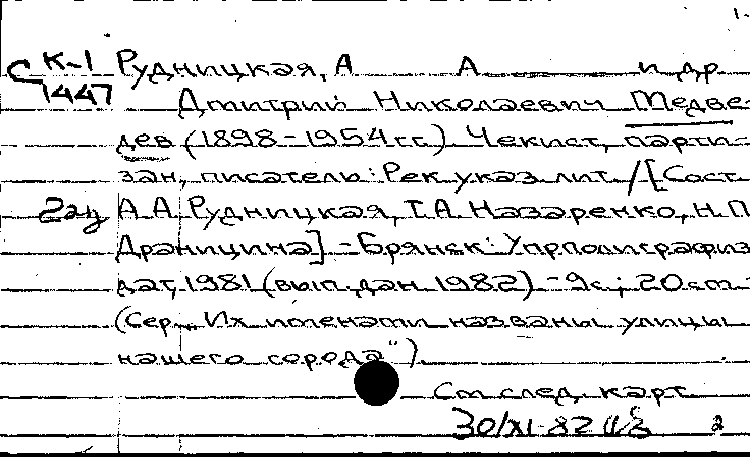 1.
К-1 Рудницкая, А А и др
С 1447 Дмитрий Николаевич Медве-
дев (1898-1954гг.). Чекист, парти-
зан, писатель: Рек указ лит /[Сост.
2аз А.А. Рудницкая, Т.А. Назаренко, Н.П.
Драницина] - Брянск: Упрполиграфиз-
дат, 1981 (вып. дан. 1982) - 9с; 20см
(Сер. „Их именами названы улицы
нашего города").
См след. карт
30/XI-82 2